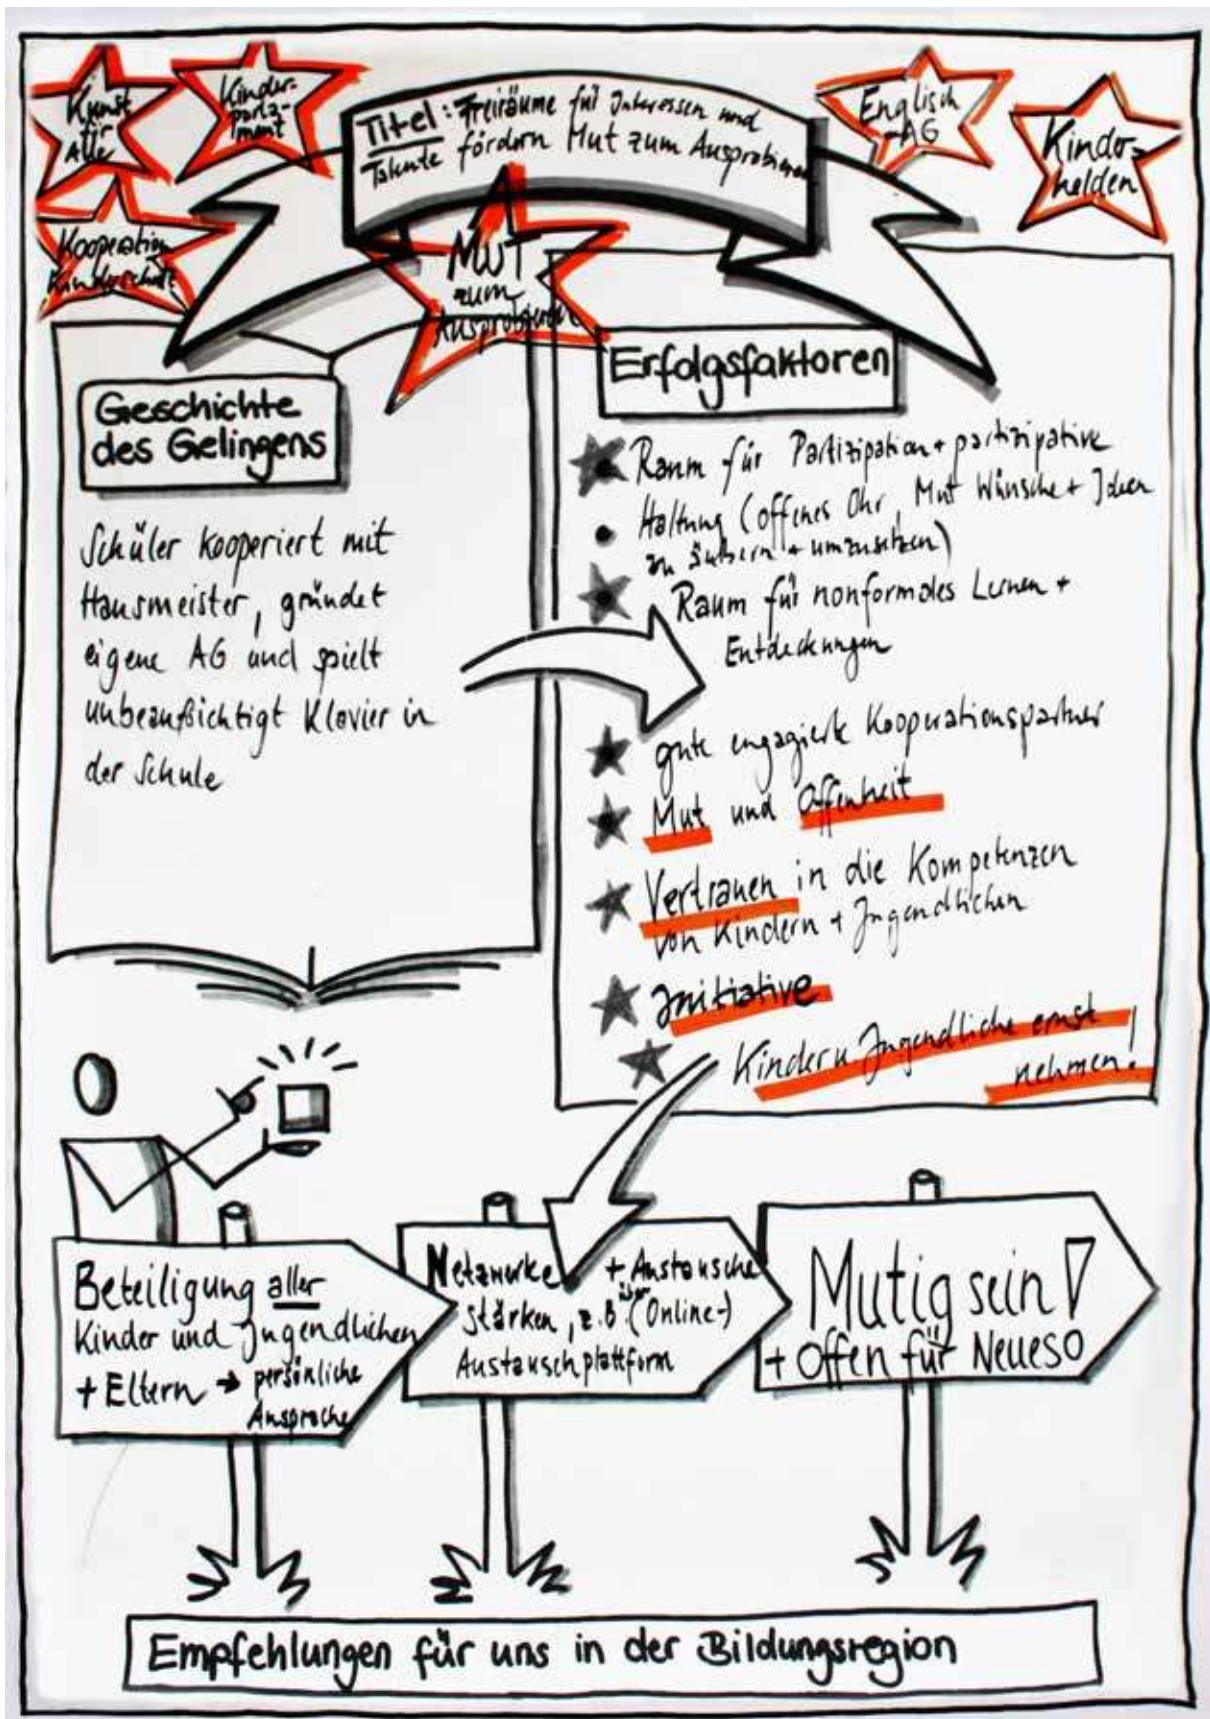 Kunst
für
Alle
Kinder-
parla-
ment
Kooperation
Kinderschutz
Titel: Freiräume für Interessen und
Talente fördern Mut zum Ausprobieren
Englisch
-AG
Kinder-
helden
Mut
zum
Ausprobieren
Geschichte
des Gelingens
Schüler kooperiert mit
Hausmeister, gründet
eigene AG und spielt
unbeaufsichtigt Klavier in
der Schule
Erfolgsfaktoren
Raum für Partizipation + partizipative
Haltung (offenes Ohr, Mut Wünsche + Ideen
zu äußern + umzusetzen)
Raum für nonformales Lernen +
Entdeckungen
gute engagierte Kooperationspartner
Mut und Offenheit
Vertrauen in die Kompetenzen
von Kindern + Jugendlichen
Initiative
Kinder u. Jugendliche ernst
nehmen!
Beteiligung aller
Kinder und Jugendlichen
+ Eltern → persönliche
Ansprache
Netzwerke + Austausche
stärken, z.B. über (Online-)
Austauschplattform
Mutig sein!
+ Offen für Neues
Empfehlungen für uns in der Bildungsregion